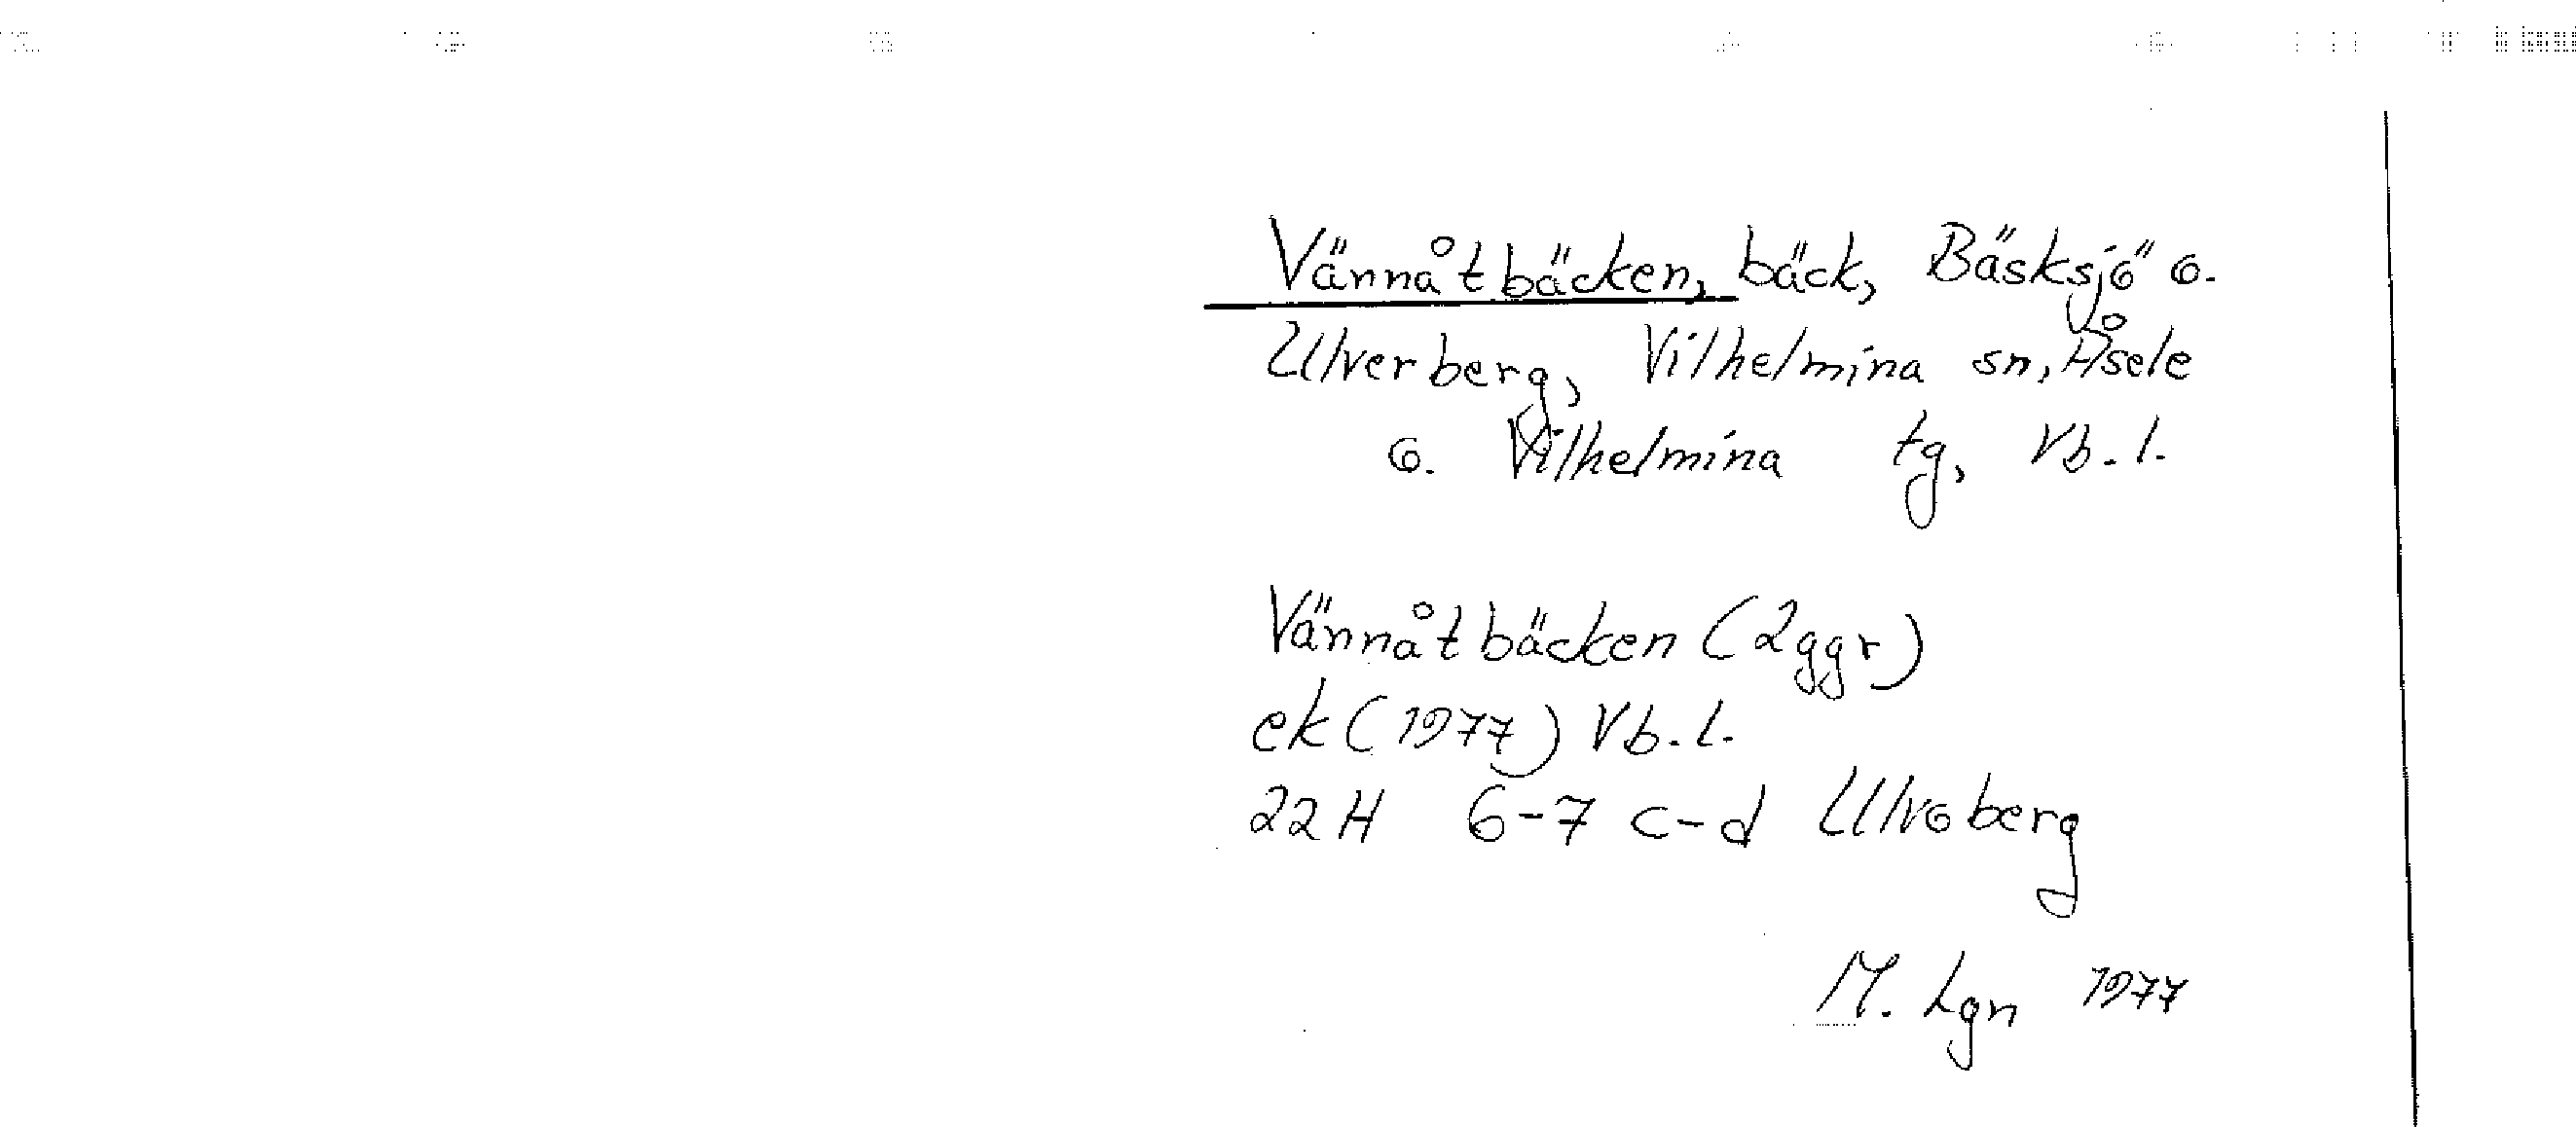 Vännåtbäcken, bäck, Bäsksjö o.
Ulverberg, Vilhelmina sn, Åsele
o. Vilhelmina tg, Vb. l.
Vännåtbäcken (2ggr)
ek (1977) Vb. l.
22 H 6-7 c-d Ulvoberg
M. Lgn 1977